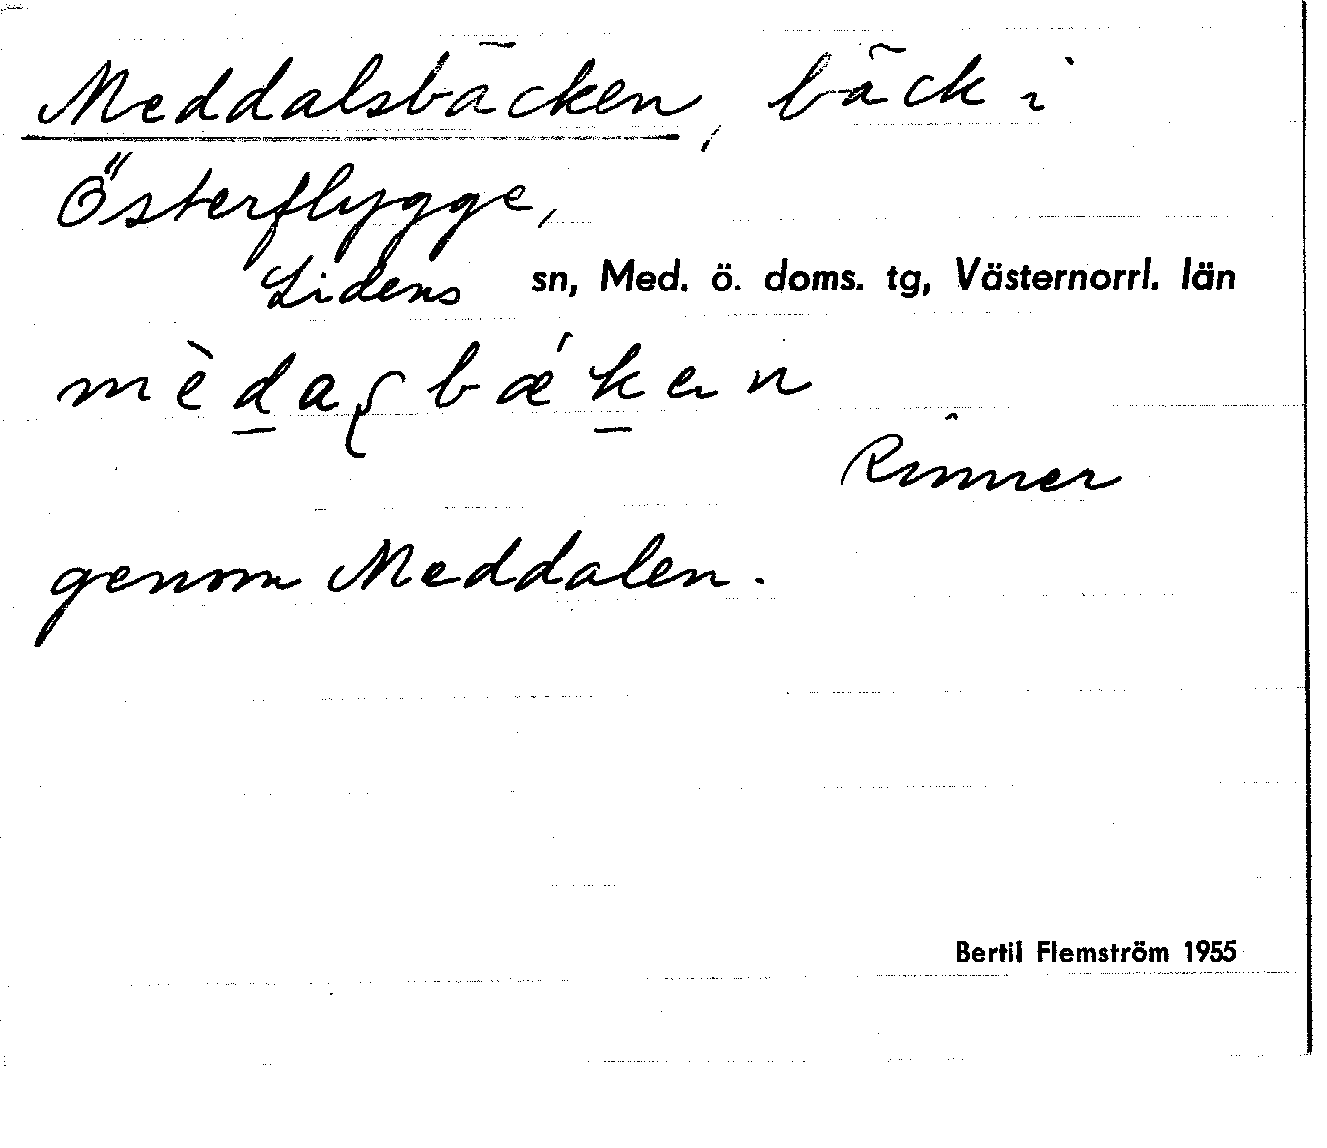 Meddalsbäcken, bäck i
Österflygge,
Lidens sn, Med. ö. doms. tg, Västernorrl. län
mèd̲aʂbǽk̲en
Rinner
genom Meddalen.
Bertil Flemström 1955